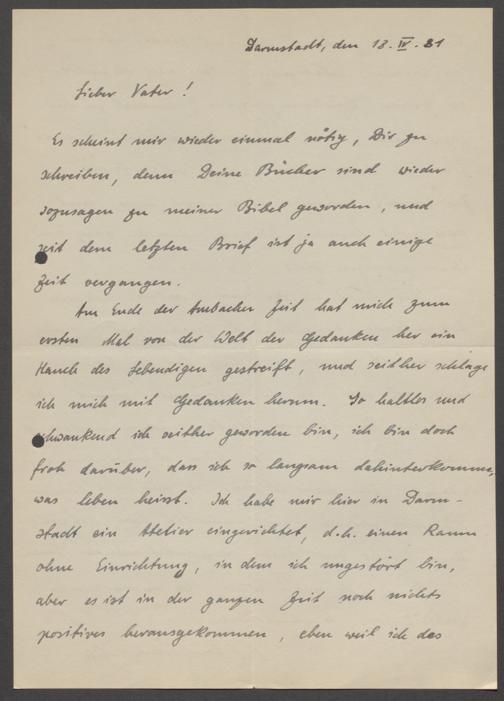 Darmstadt, den 18. IV. 31
Lieber Vater!
Es scheint mir wieder einmal nötig, Dir zu
schreiben, denn Deine Bücher sind wieder
sozusagen zu meiner Bibel geworden, und
seit dem letzten Brief ist ja auch einige
Zeit vergangen.
Am Ende der Ambacher Zeit hat mich zum
ersten Mal von der Welt der Gedanken her ein
Hauch des Lebendigen gestreift, und seither schlage
ich mich mit Gedanken herum. So haltlos und
schwankend ich seither geworden bin, ich bin doch
froh darüber, dass ich so langsam dahinterkomme,
was leben heisst. Ich habe mir hier in Darm-
stadt ein Atelier eingerichtet, d.h. einen Raum
ohne Einrichtung, in dem ich ungestört bin,
aber es ist in der ganzen Zeit noch nichts
positives herausgekommen, eben weil ich das